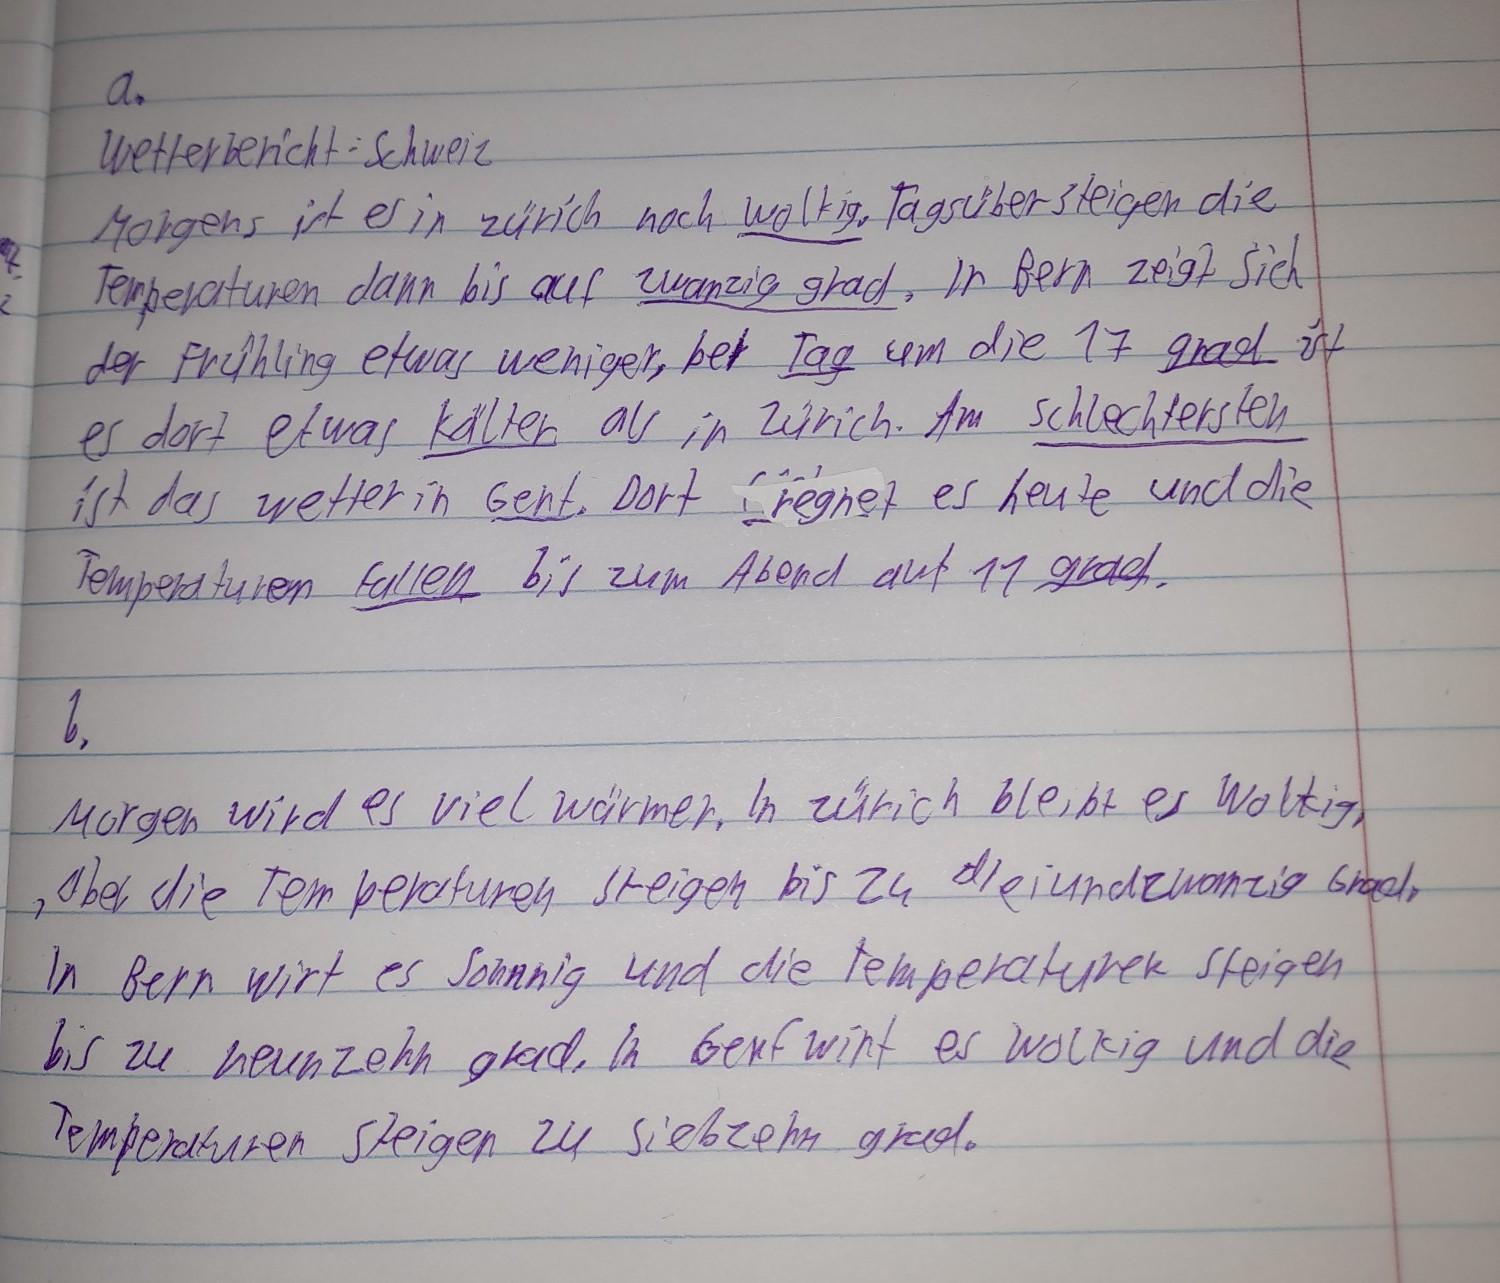 a.
Wetterbericht: Schweiz
Morgens ist es in zürich noch wolkig. Tagsüber steigen die
Temperaturen dann bis auf zwanzig grad. In Bern zeigt sich
der Frühling etwas weniger, bei Tag um die 17 grad ist
es dort etwas kälter als in Zürich. Am schlechtersten
ist das wetter in Genf. Dort regnet es heute und die
Temperaturen fallen bis zum Abend auf 11 grad.
b.
Morgen wird es viel wärmer. In zürich bleibt es Wolkig,
, aber die Temperaturen steigen bis zu dreiundzwanzig Grad.
In Bern wirt es Sonnnig und die Temperaturen steigen
bis zu neunzehn grad. In Genf wirt es wolkig und die
Temperaturen steigen zu siebzehn grad.